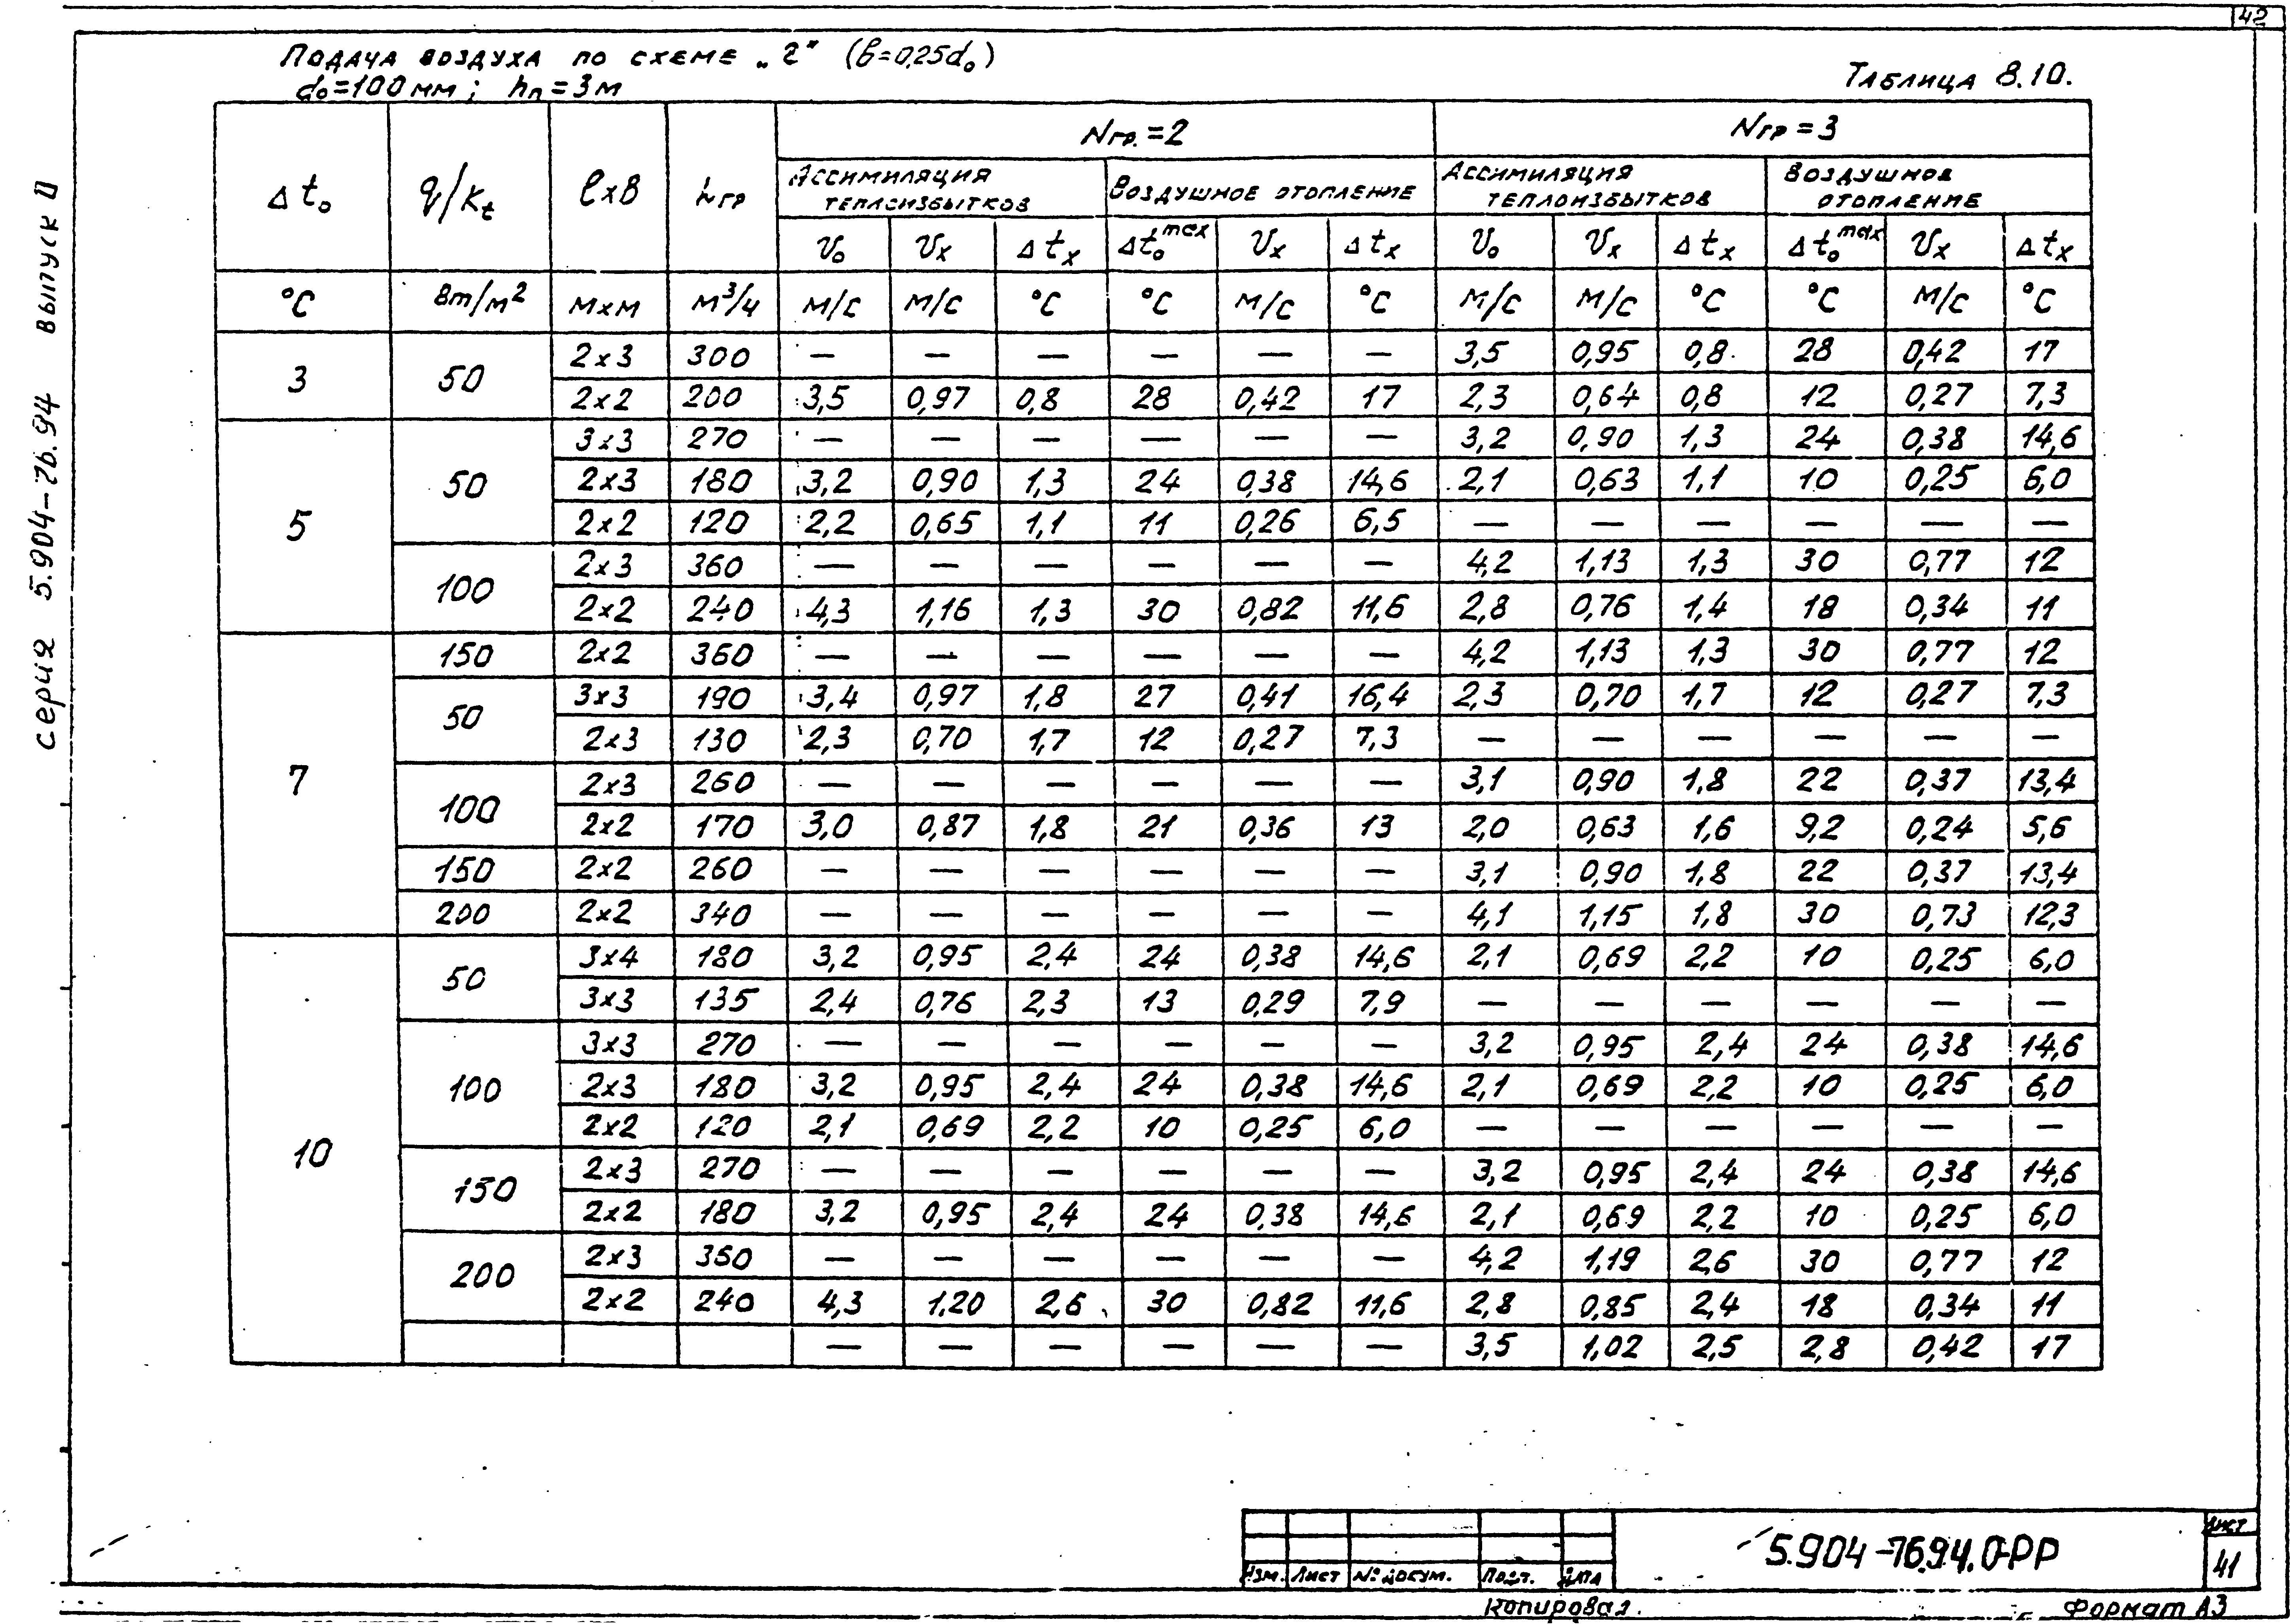 42
Подача воздуха по схеме „г" (в=0,25d₀)
d₀=100 мм; hп=3м
Таблица 8.10.
серия 5.904-76.94 выпуск 0
Δt₀ q/Kt ℓxB Lгр Nгр.=2 Nгр=3
Ассимиляция теплоизбытков Воздушное отопление Ассимиляция теплоизбытков Воздушное отопление
V₀ Vx Δtx Δt₀max Vx Δtx V₀ Vx Δtx Δt₀max Vx Δtx
°C Вт/м² мxм м³/ч м/с м/с °C °C м/с °C м/с м/с °C °C м/с °C
3 50 2x3 300 — — — — — — 3,5 0,95 0,8 28 0,42 17
2x2 200 3,5 0,97 0,8 28 0,42 17 2,3 0,64 0,8 12 0,27 7,3
5 50 3x3 270 — — — — — — 3,2 0,90 1,3 24 0,38 14,6
2x3 180 3,2 0,90 1,3 24 0,38 14,6 2,1 0,63 1,1 10 0,25 6,0
2x2 120 2,2 0,65 1,1 11 0,26 6,5 — — — — — —
100 2x3 360 — — — — — — 4,2 1,13 1,3 30 0,77 12
2x2 240 4,3 1,16 1,3 30 0,82 11,6 2,8 0,76 1,4 18 0,34 11
7 150 2x2 360 — — — — — — 4,2 1,13 1,3 30 0,77 12
50 3x3 190 3,4 0,97 1,8 27 0,41 16,4 2,3 0,70 1,7 12 0,27 7,3
2x3 130 2,3 0,70 1,7 12 0,27 7,3 — — — — — —
100 2x3 260 — — — — — — 3,1 0,90 1,8 22 0,37 13,4
2x2 170 3,0 0,87 1,8 21 0,36 13 2,0 0,63 1,6 9,2 0,24 5,6
150 2x2 260 — — — — — — 3,1 0,90 1,8 22 0,37 13,4
200 2x2 340 — — — — — — 4,1 1,15 1,8 30 0,73 12,3
10 50 3x4 180 3,2 0,95 2,4 24 0,38 14,6 2,1 0,69 2,2 10 0,25 6,0
3x3 135 2,4 0,76 2,3 13 0,29 7,9 — — — — — —
100 3x3 270 — — — — — — 3,2 0,95 2,4 24 0,38 14,6
2x3 180 3,2 0,95 2,4 24 0,38 14,6 2,1 0,69 2,2 10 0,25 6,0
2x2 120 2,1 0,69 2,2 10 0,25 6,0 — — — — — —
150 2x3 270 — — — — — — 3,2 0,95 2,4 24 0,38 14,6
2x2 180 3,2 0,95 2,4 24 0,38 14,6 2,1 0,69 2,2 10 0,25 6,0
200 2x3 360 — — — — — — 4,2 1,19 2,6 30 0,77 12
2x2 240 4,3 1,20 2,6 30 0,82 11,6 2,8 0,85 2,4 18 0,34 11
— — — — — — 3,5 1,02 2,5 2,8 0,42 17
Изм. Лист № докум. Подп. Дата
5.904-76.94.0-РР
Лист
41
Копировал.
Формат А3